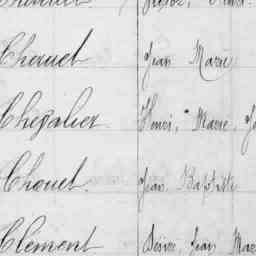 Cheruel Jean Marie
Chevalier Henri, Marie, J
Chouel. Jean Baptiste
Clement Désiré Jean Mar